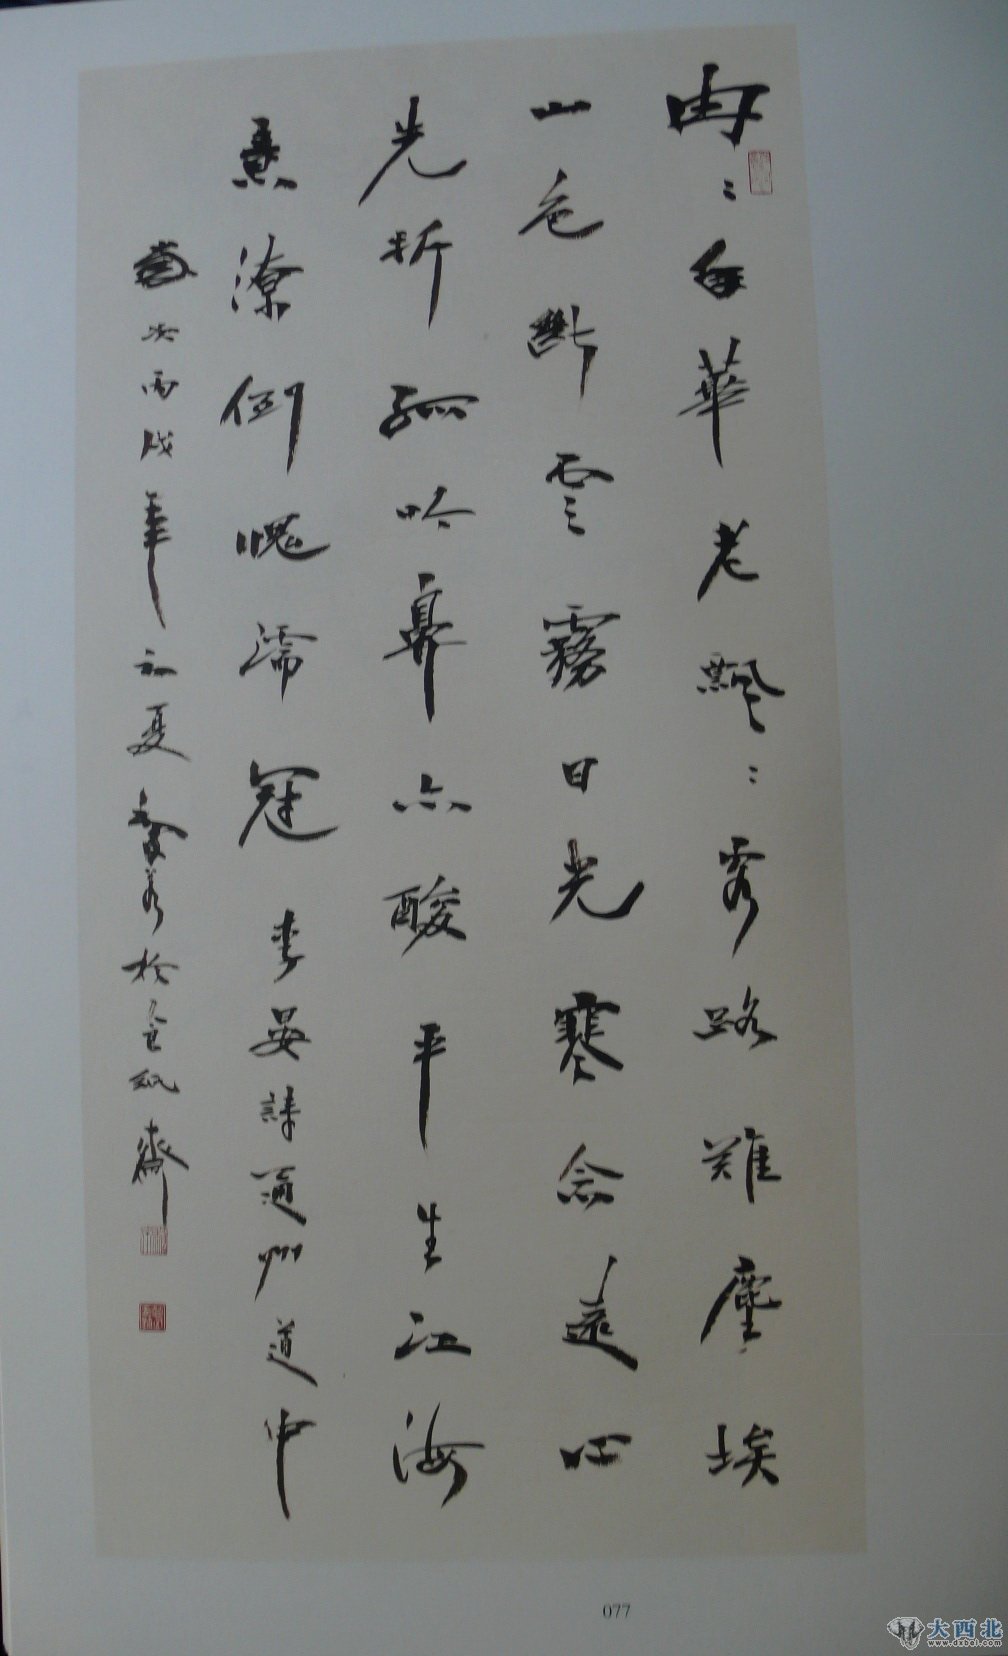 冉冉年華老飄飄客路難塵埃
山色斷雲霧日光寒念遠心
先折孤吟鼻亦酸平生江海
意潦倒愧濡冠 李晏詩通州道中
歲次丙戌年初夏 於 齋
077
大西北
www.dxbei.com